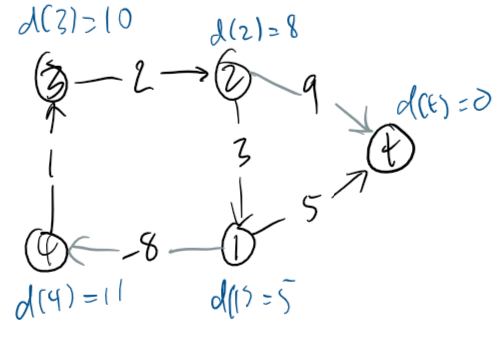 d(3)=10
d(2)=8
3
2
2
9
d(t)=0
1
3
t
5
4
-8
1
d(4)=11
d(1)=5